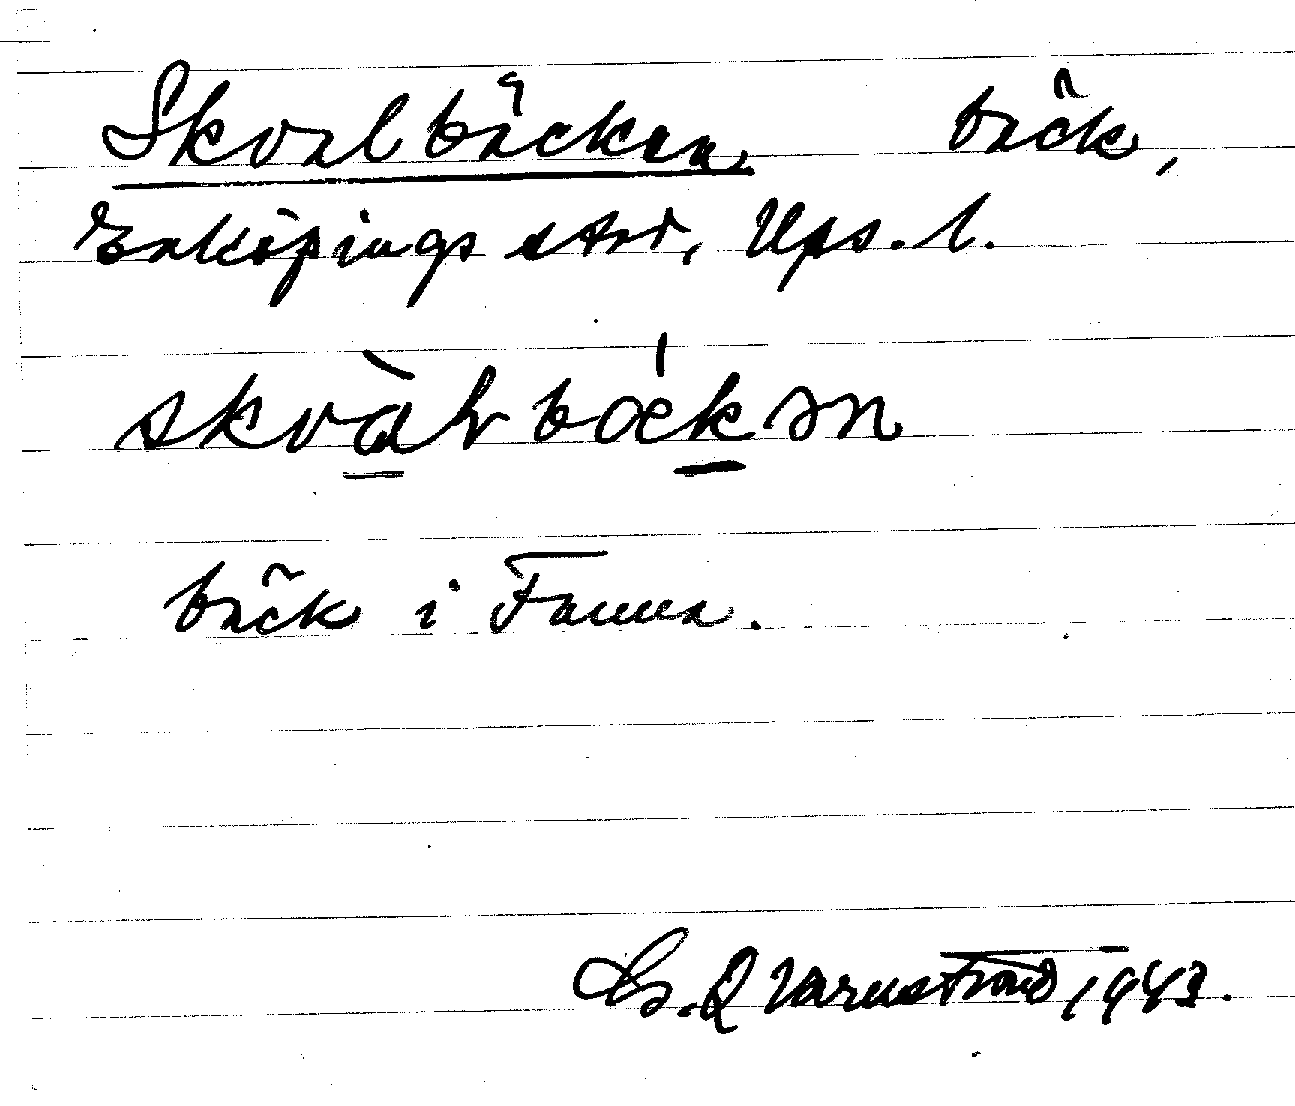 Skvalbäcken bäck,
Enköpings stad, Ups. l.
skvàlbǽkən
bäck i Fanna.
G. Qvarnström, 1943.